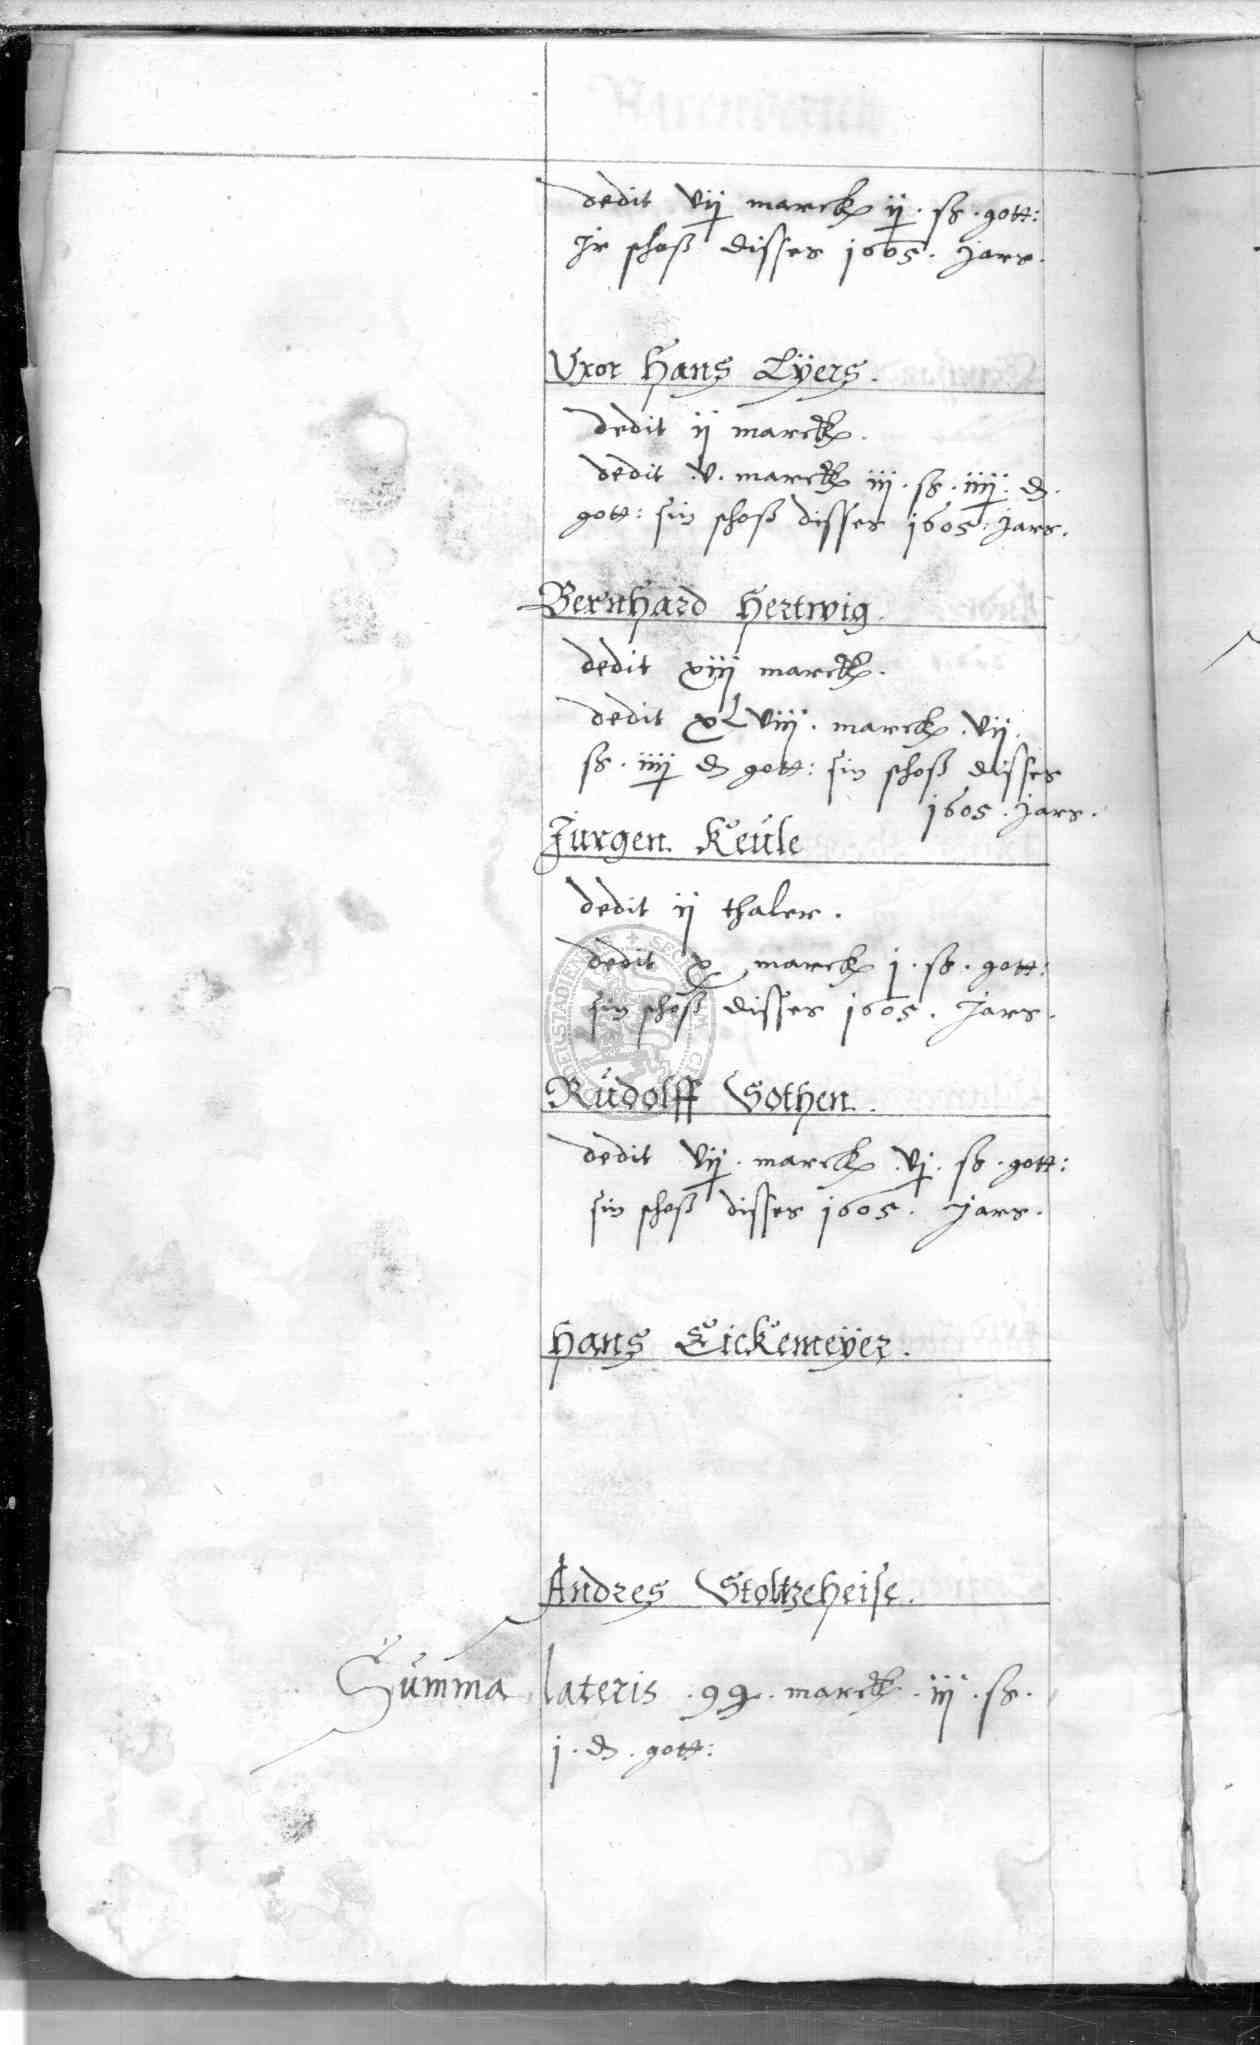 dedit vij marck ij · ß · gott:
Jr schoß disses 1605 · jars ·
Vxor Hans Lÿers ·
dedit ij marck ·
dedit · v · marck iij · ß · iiij · ₰ ·
gott: sin schoß disses 1605 · Jars ·
Bernhard Hertwig ·
dedit xiij marck ·
dedit xLviij · marck · vij ·
ß · iiij ₰ gott: sin schoß disses
1605 · jars ·
Jurgen Keule
dedit ij thaler ·
dedit x marck j · ß · gott:
sin schoß disses 1605 · Jars ·
Rudolff Sothen ·
dedit vij · marck · vj · ß · gott:
sin schoß disses 1605 · jars ·
Hans Eickemeÿer ·
Andres Stoltzeheise ·
Summa lateris · 99 · marck · iij · ß ·
j · ₰ · gott: